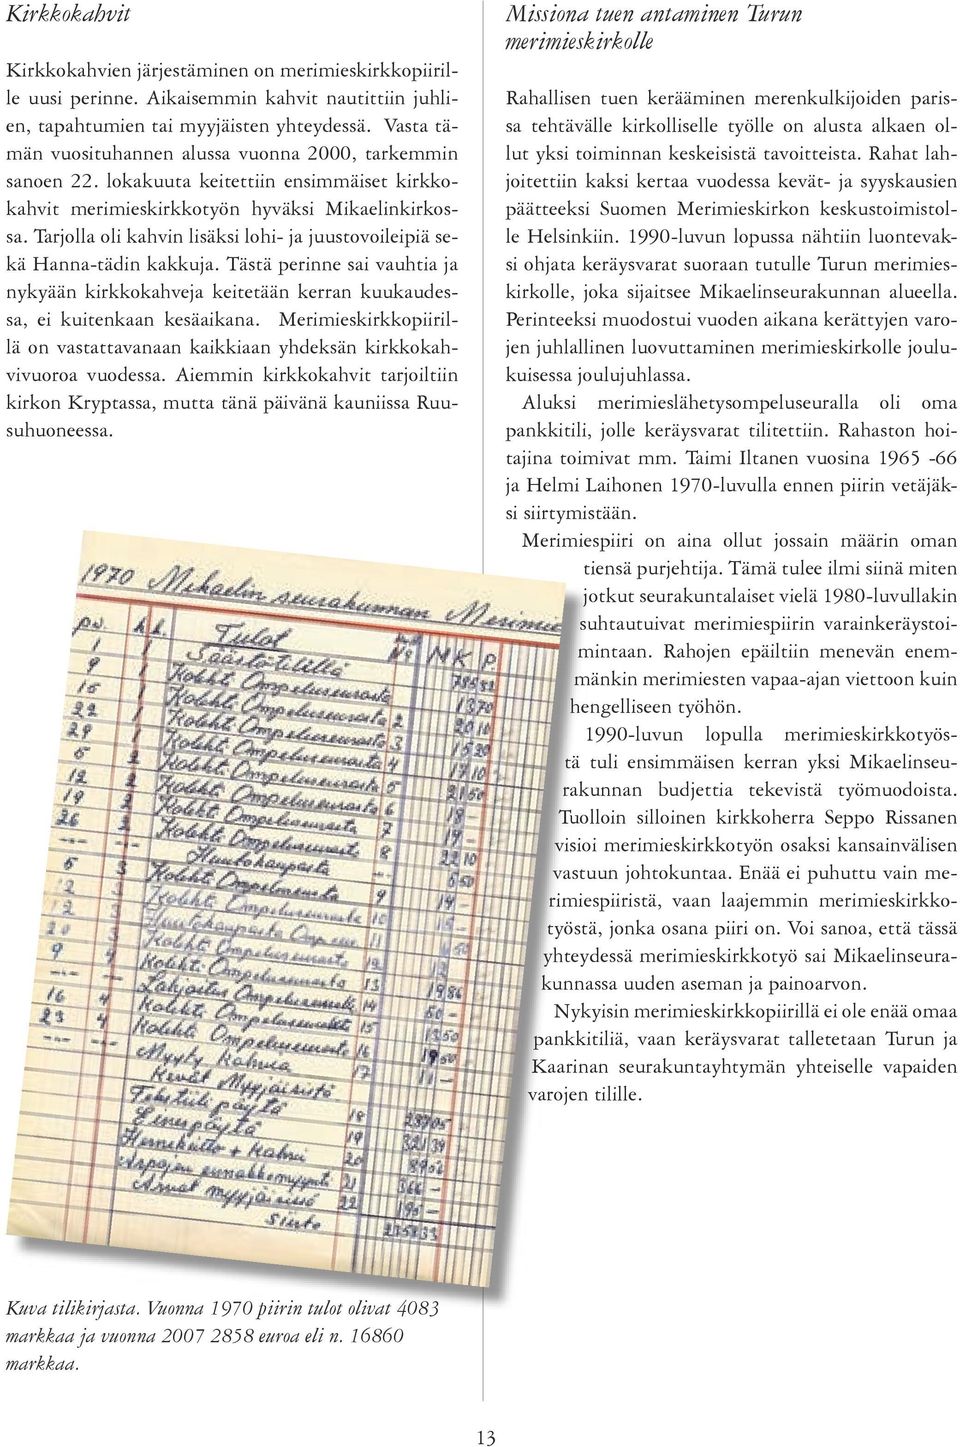 Kirkkokahvit
Kirkkokahvien järjestäminen on merimieskirkkopiiril-
le uusi perinne. Aikaisemmin kahvit nautittiin juhli-
en, tapahtumien tai myyjäisten yhteydessä. Vasta tä-
män vuosituhannen alussa vuonna 2000, tarkemmin
sanoen 22. lokakuuta keitettiin ensimmäiset kirkko-
kahvit merimieskirkkotyön hyväksi Mikaelinkirkos-
sa. Tarjolla oli kahvin lisäksi lohi- ja juustovoileipiä se-
kä Hanna-tädin kakkuja. Tästä perinne sai vauhtia ja
nykyään kirkkokahveja keitetään kerran kuukaudes-
sa, ei kuitenkaan kesäaikana. Merimieskirkkopiiril-
lä on vastattavanaan kaikkiaan yhdeksän kirkkokah-
vivuoroa vuodessa. Aiemmin kirkkokahvit tarjoiltiin
kirkon Kryptassa, mutta tänä päivänä kauniissa Ruu-
suhuoneessa.
1970 Mikaelin seurakunnan Merimie
pv. kk. Tulot N:o MK P.
1 1 Säästötilillä
9 1 Kolehti Ompeluseurasta 1370
15 1 Kolehti Ompeluseurasta 2 2010
22 1 Kolehti Ompeluseurasta 3 1530
29 1 Kolehti Ompeluseurasta 4 1710
5 2 Kolehti Ompeluseurasta 5 2150
12 2 Kolehti Ompeluseurasta 6 18-
19 2 Kolehti Ompeluseurasta 7 19-
26 2 Kolehti Ompeluseurasta 8 2210
Huutokaupasta 650
5 3 Kolehti Ompeluseurasta 9 14-
12 3 Kolehti Ompeluseurasta 10 15-
Huutokaupasta 11
Kolehti Ompeluseurasta 12 12
Kolehti Ompeluseurasta 13 1986
Lahjoitus Ompeluseuralle 14 50-
16 4 Kolehti Ompeluseurasta 15 1350
23 4 Kolehti Ompeluseurasta 16 1950
Myyty kahvia 17 11-
Kevät Myyjäisistä
Tekstiilipöytä 18 23705
Einespöytä 19 32139
Hernekeitto + kahvi 20 8956
Arpojen ennakkomyynti 21 366-
Arvat myyjäisissä 22 195-
Siirto
Kuva tilikirjasta. Vuonna 1970 piirin tulot olivat 4083
markkaa ja vuonna 2007 2858 euroa eli n. 16860
markkaa.
Missiona tuen antaminen Turun
merimieskirkolle
Rahallisen tuen kerääminen merenkulkijoiden paris-
sa tehtävälle kirkolliselle työlle on alusta alkaen ol-
lut yksi toiminnan keskeisistä tavoitteista. Rahat lah-
joitettiin kaksi kertaa vuodessa kevät- ja syyskausien
päätteeksi Suomen Merimieskirkon keskustoimistol-
le Helsinkiin. 1990-luvun lopussa nähtiin luontevak-
si ohjata keräysvarat suoraan tutulle Turun merimies-
kirkolle, joka sijaitsee Mikaelinseurakunnan alueella.
Perinteeksi muodostui vuoden aikana kerättyjen varo-
jen juhlallinen luovuttaminen merimieskirkolle joulu-
kuisessa joulujuhlassa.
Aluksi merimieslähetysompeluseuralla oli oma
pankkitili, jolle keräysvarat tilitettiin. Rahaston hoi-
tajina toimivat mm. Taimi Iltanen vuosina 1965 -66
ja Helmi Laihonen 1970-luvulla ennen piirin vetäjäk-
si siirtymistään.
Merimiespiiri on aina ollut jossain määrin oman
tiensä purjehtija. Tämä tulee ilmi siinä miten
jotkut seurakuntalaiset vielä 1980-luvullakin
suhtautuivat merimiespiirin varainkeräystoi-
mintaan. Rahojen epäiltiin menevän enem-
mänkin merimiesten vapaa-ajan viettoon kuin
hengelliseen työhön.
1990-luvun lopulla merimieskirkkotyös-
tä tuli ensimmäisen kerran yksi Mikaelinseu-
rakunnan budjettia tekevistä työmuodoista.
Tuolloin silloinen kirkkoherra Seppo Rissanen
visioi merimieskirkkotyön osaksi kansainvälisen
vastuun johtokuntaa. Enää ei puhuttu vain me-
rimiespiiristä, vaan laajemmin merimieskirkko-
työstä, jonka osana piiri on. Voi sanoa, että tässä
yhteydessä merimieskirkkotyö sai Mikaelinseura-
kunnassa uuden aseman ja painoarvon.
Nykyisin merimieskirkkopiirillä ei ole enää omaa
pankkitiliä, vaan keräysvarat talletetaan Turun ja
Kaarinan seurakuntayhtymän yhteiselle vapaiden
varojen tilille.
13